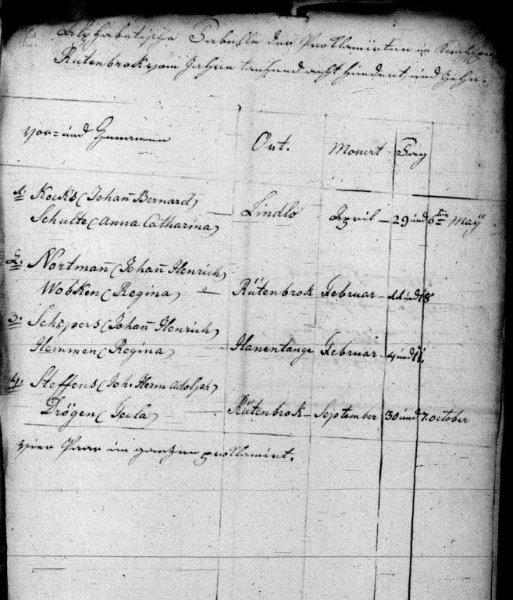 Alphabetische Tabelle der Proklamirten in
Rütenbrok vom Jahre tausend acht hundert und zehn.
Vor- und Zunamen Ort. Monat Tag
1. Kocks (Johan̄ Bernard)
Schulte (Anna Catharina) Lindlo April 29 und 6ten May
2. Nortman̄ (Johan̄ Henrich)
Wobken (Regina) Rütenbrok Februar 11 und 18
3. Schepers (Johan̄ Henrich)
Hemmen (Regina) Hanentange Februar 4 und 11
4. Steffens (Joh. Herm Adolph)
Drögen (Tecla) Rütenbrok September 30 und 7. october
vier Paar im ganzen proklamirt.